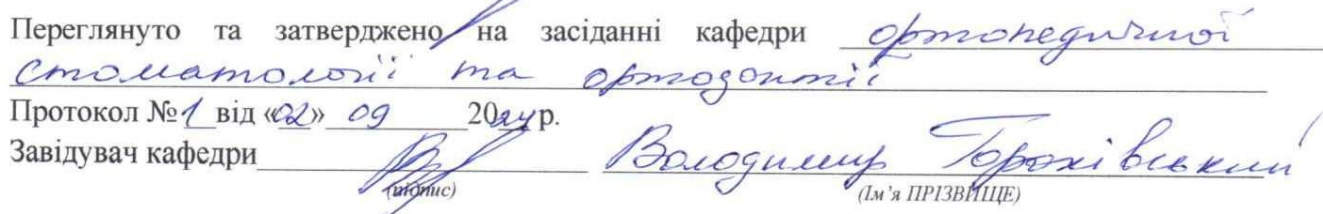 Переглянуто та затверджено на засіданні кафедри ортопедичної
стоматології та ортодонтії
Протокол №1 від «02» 09 2024р.
Завідувач кафедри Володимир Горохівський
(підпис) (Ім’я ПРІЗВИЩЕ)